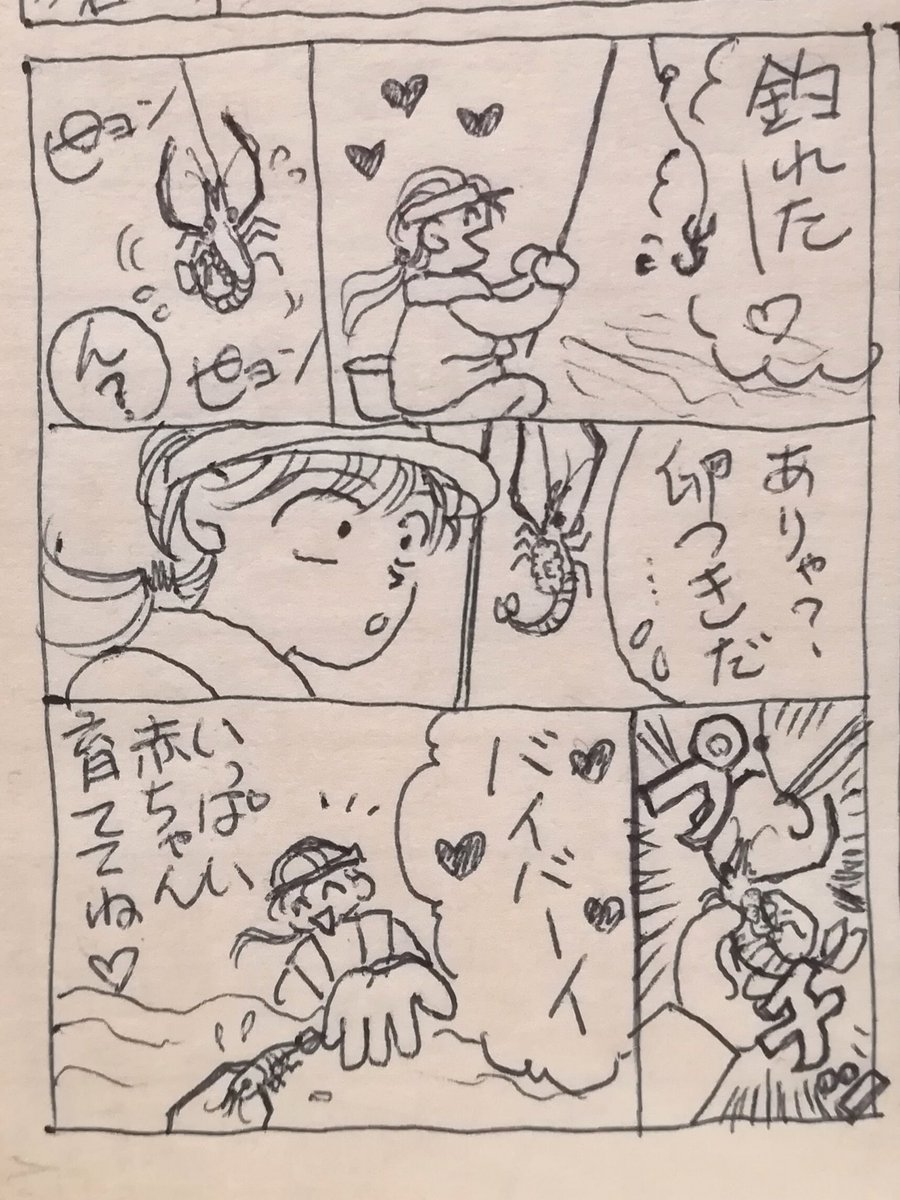 釣れたー♡
ピョン
ピョン
ん?
ありゃ?、
卵つきだ……
バイバーイ
いっぱい
赤ちゃん
育ててね♡